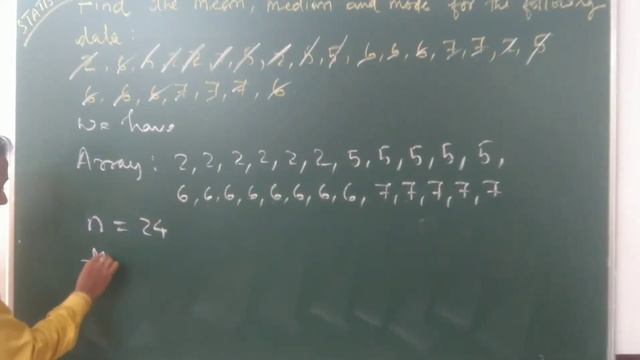 STATIS
Find the mean, medium and mode for the following
data:
6, 6, 6, 7, 7, 7, 6
we have
Array: 2, 2, 2, 2, 2, 2, 5, 5, 5, 5, 5,
6, 6, 6, 6, 6, 6, 6, 6, 7, 7, 7, 7, 7
n = 24